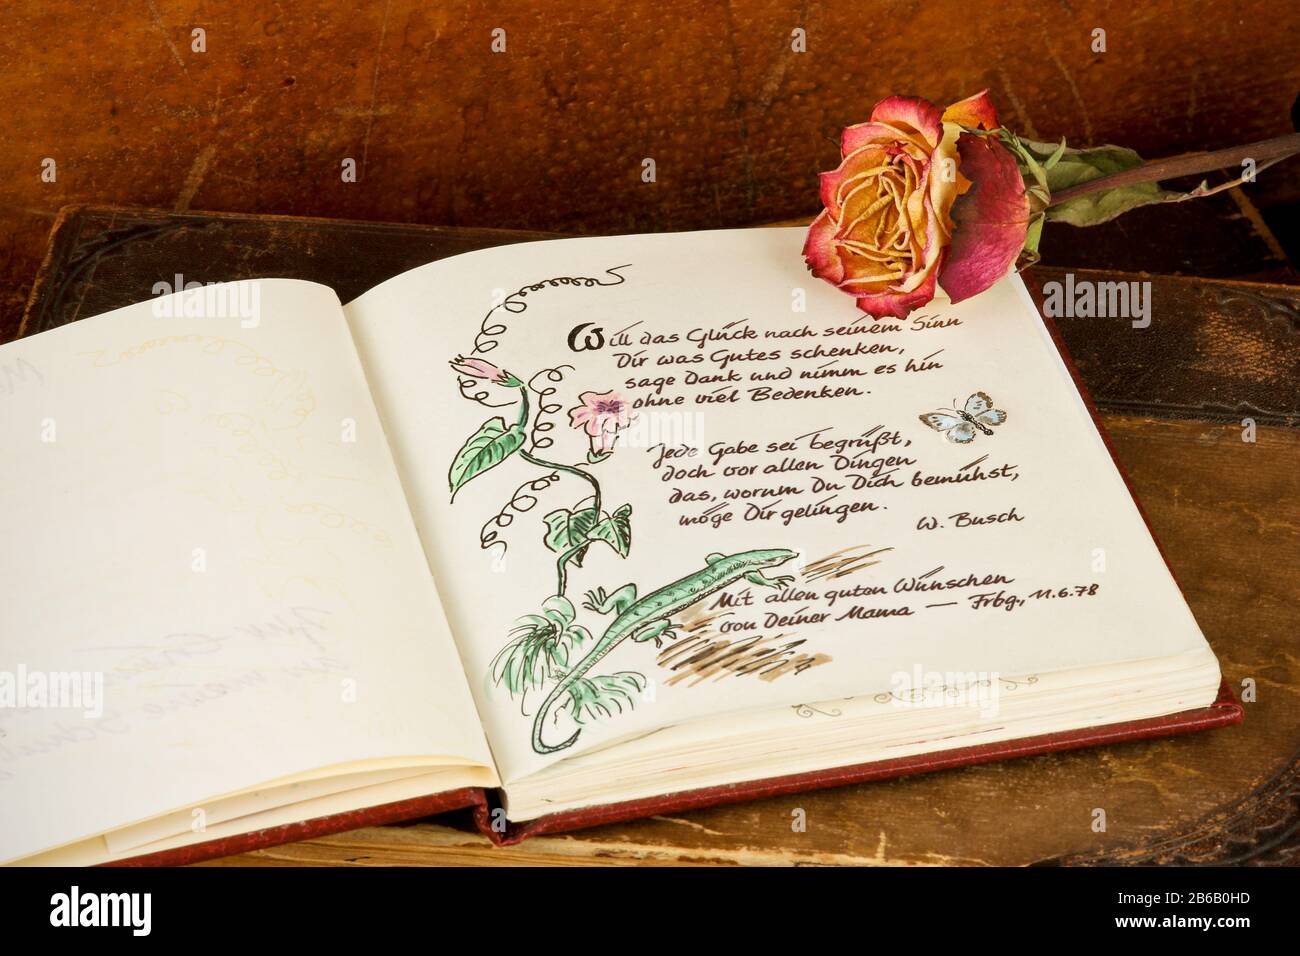 Will das Glück nach seinem Sinn
Dir was Gutes schenken,
sage Dank und nimm es hin
ohne viel Bedenken.
Jede Gabe sei begrüßt,
doch vor allen Dingen
das, worum Du Dich bemühst,
möge Dir gelingen.
W. Busch
Mit allen guten Wünschen
von Deiner Mama — Frbg., 11.6.78
a
alamy
Image ID: 2B6B0HD
www.alamy.com